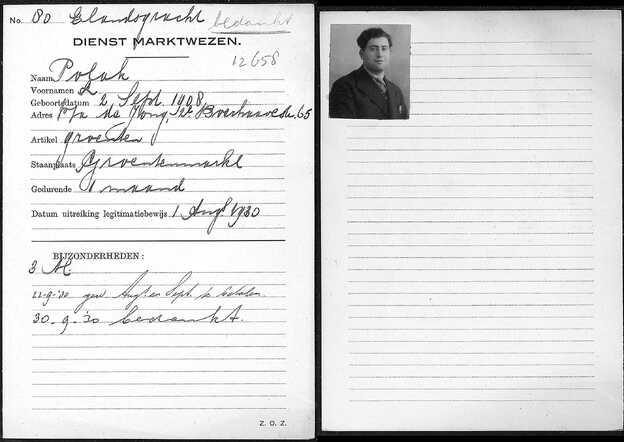 No. 80 Elandsgracht bedankt
DIENST MARKTWEZEN.
12658
Naam Polak
Voornamen
Geboortedatum 2 Sept 1908
Adres p/a de Jong, 2e Boerhaavestr. 65
Artikel groenten
Staanplaats Groentenmarkt
Gedurende 1 maand
Datum uitreiking legitimatiebewijs 1 Aug 1930
BIJZONDERHEDEN:
3 M.
11-9-'30 Aug. en Sept. te betalen.
30-9-'30 bedankt.
Z. O. Z.